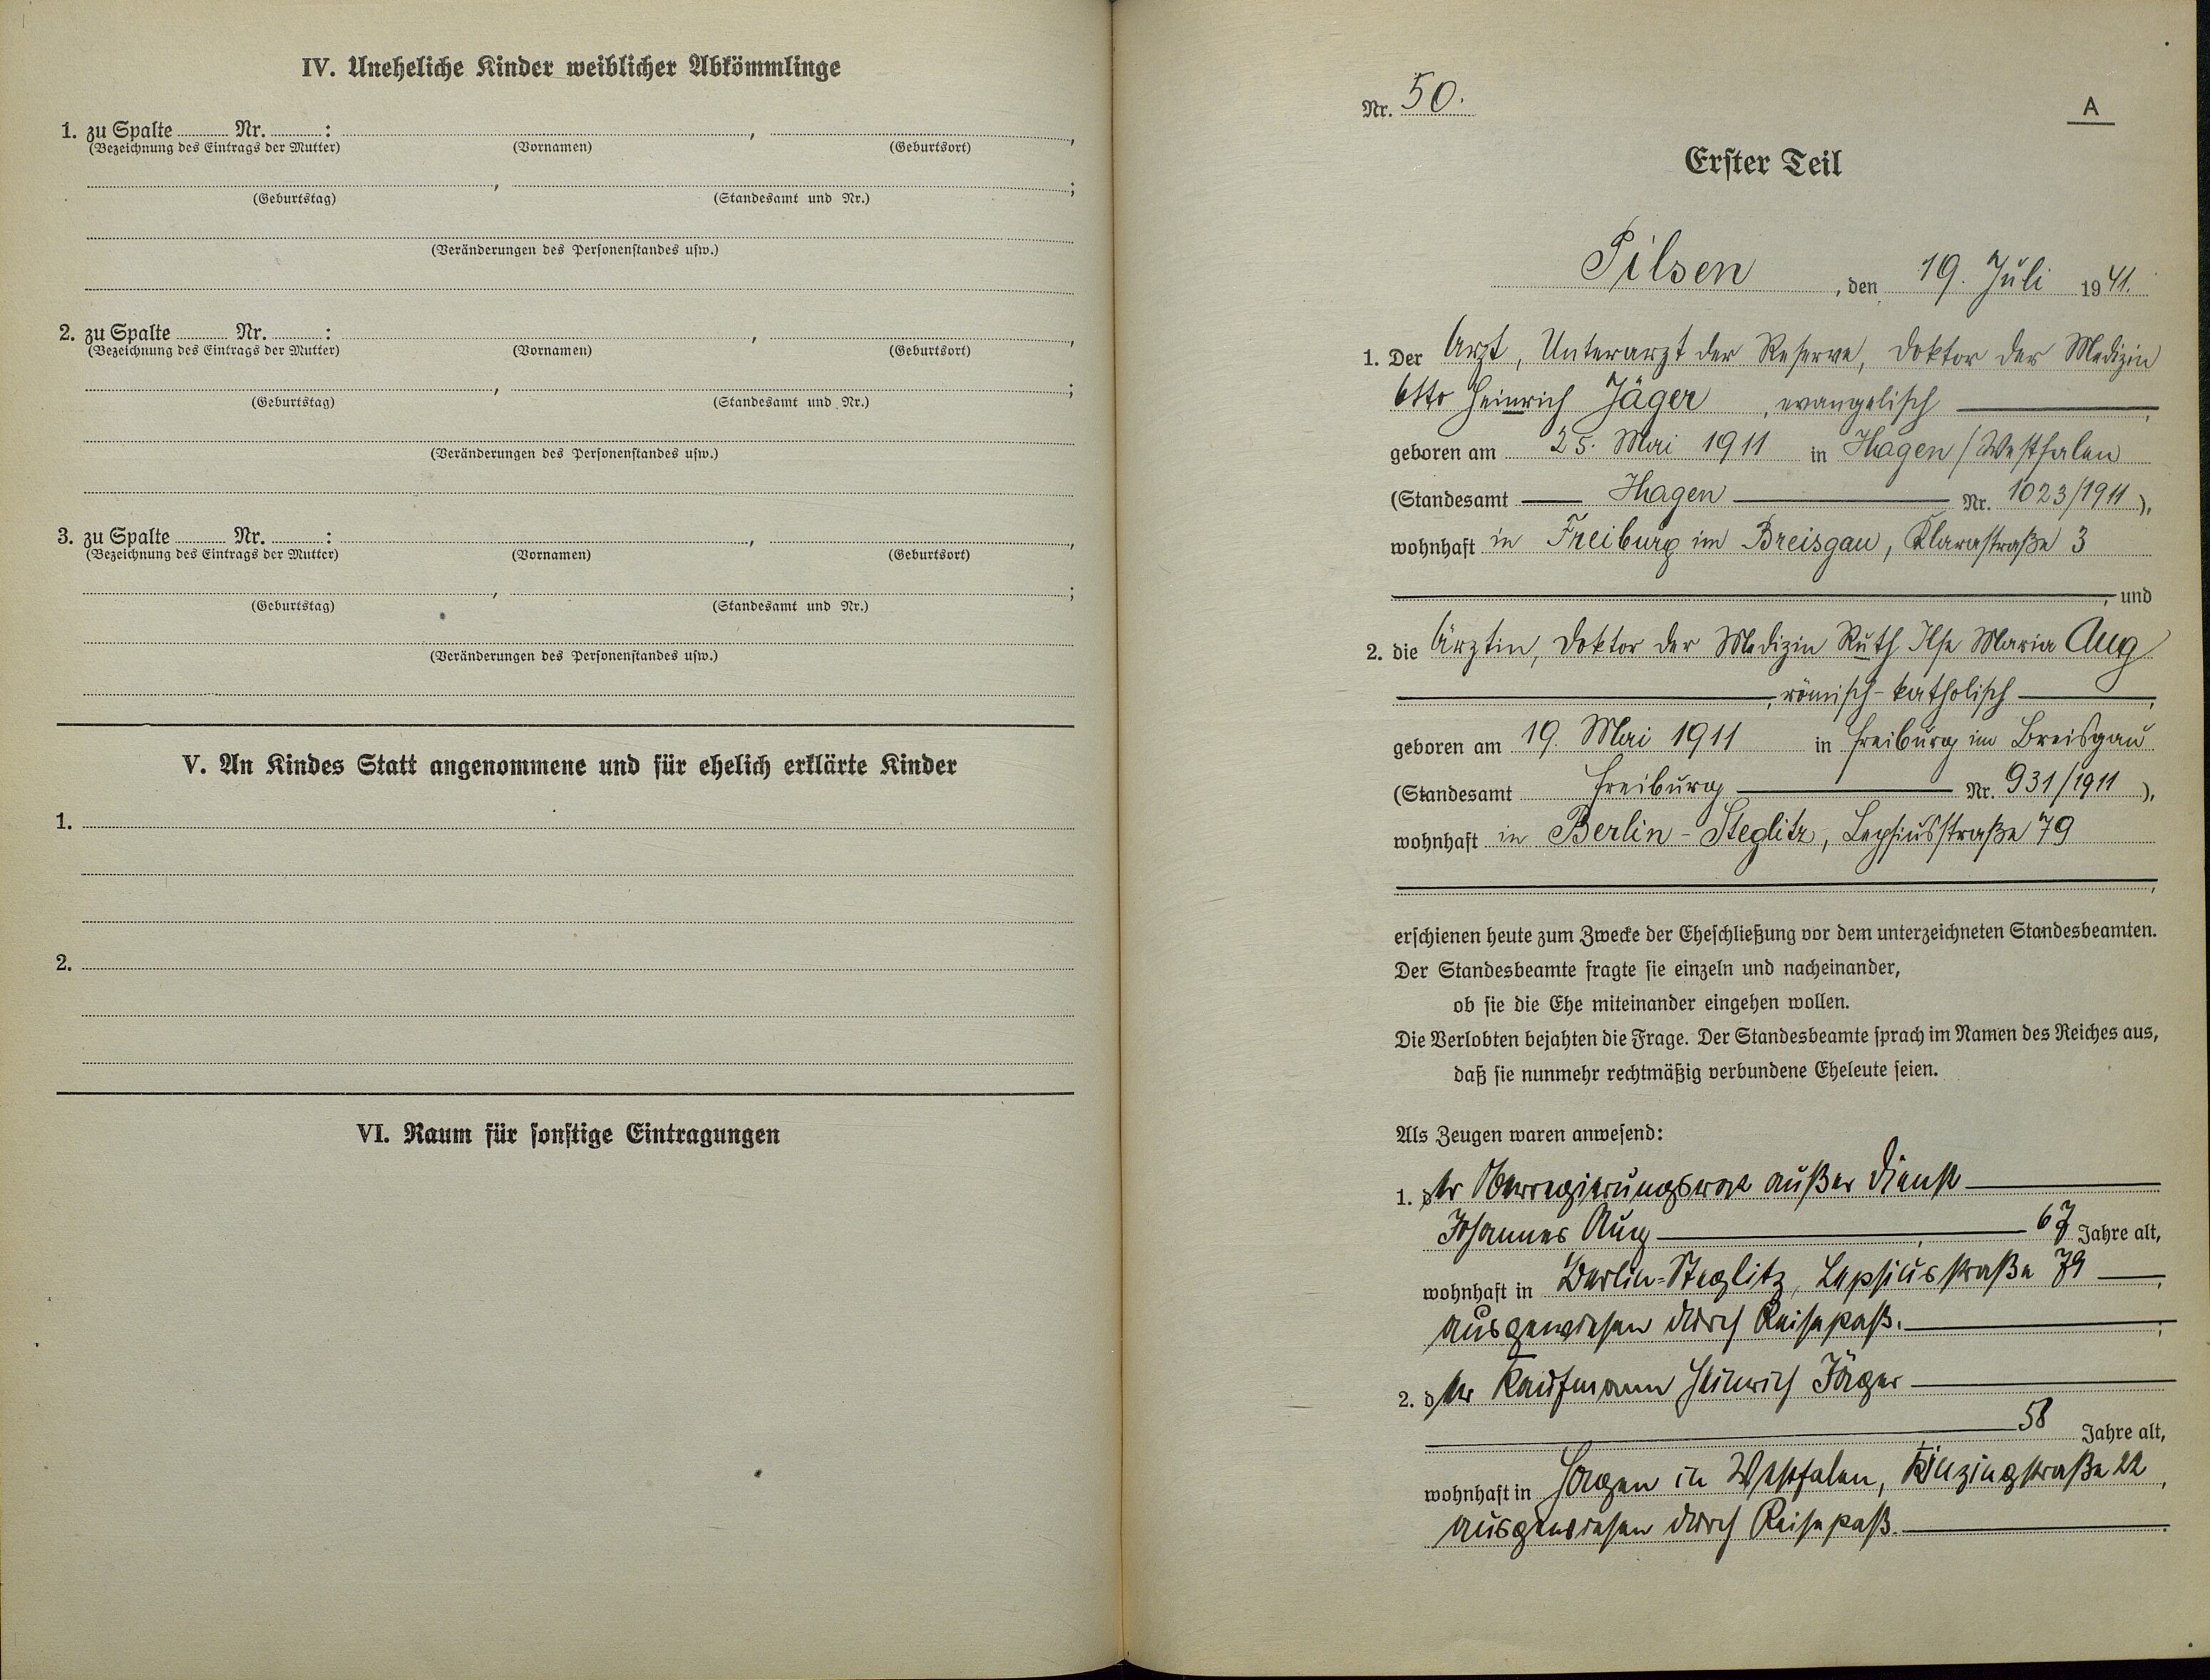 IV. Uneheliche Kinder weiblicher Abkömmlinge
1. zu Spalte ........ Nr. ........ : ........ , ........ ,
(Bezeichnung des Eintrags der Mutter) (Vornamen) (Geburtsort)
........ , ........ ;
(Geburtstag) (Standesamt und Nr.)
(Veränderungen des Personenstandes usw.)
2. zu Spalte ........ Nr. ........ : ........ , ........ ,
(Bezeichnung des Eintrags der Mutter) (Vornamen) (Geburtsort)
........ , ........ ;
(Geburtstag) (Standesamt und Nr.)
(Veränderungen des Personenstandes usw.)
3. zu Spalte ........ Nr. ........ : ........ , ........ ,
(Bezeichnung des Eintrags der Mutter) (Vornamen) (Geburtsort)
........ , ........ ;
(Geburtstag) (Standesamt und Nr.)
(Veränderungen des Personenstandes usw.)
V. An Kindes Statt angenommene und für ehelich erklärte Kinder
1.
2.
VI. Raum für sonstige Eintragungen
Nr. 50.
A
Erster Teil
Pilsen, den 19. Juli 1941.
1. Der Arzt, Unterarzt der Reserve, Doktor der Medizin
Otto Heinrich Jäger, evangelisch,
geboren am 25. Mai 1911 in Hagen/Westfalen
(Standesamt Hagen Nr. 1023/1911),
wohnhaft in Freiburg im Breisgau, Klarastraße 3
, und
2. die Ärztin, Doktor der Medizin Ruth Ilse Maria Aug
, römisch-katholisch,
geboren am 19. Mai 1911 in Freiburg im Breisgau
(Standesamt Freiburg Nr. 931/1911),
wohnhaft in Berlin-Steglitz, Lepsiusstraße 79
,
erschienen heute zum Zwecke der Eheschließung vor dem unterzeichneten Standesbeamten.
Der Standesbeamte fragte sie einzeln und nacheinander,
ob sie die Ehe miteinander eingehen wollen.
Die Verlobten bejahten die Frage. Der Standesbeamte sprach im Namen des Reiches aus,
daß sie nunmehr rechtmäßig verbundene Eheleute seien.
Als Zeugen waren anwesend:
1. der Oberregierungsrat außer Dienst
Johannes Aug, 67 Jahre alt,
wohnhaft in Berlin-Steglitz, Lepsiusstraße 79,
ausgewiesen durch Reisepaß. ;
2. der Kaufmann Heinrich Jäger
58 Jahre alt,
wohnhaft in Hagen in Westfalen, Kinzingstraße 22,
ausgewiesen durch Reisepaß.